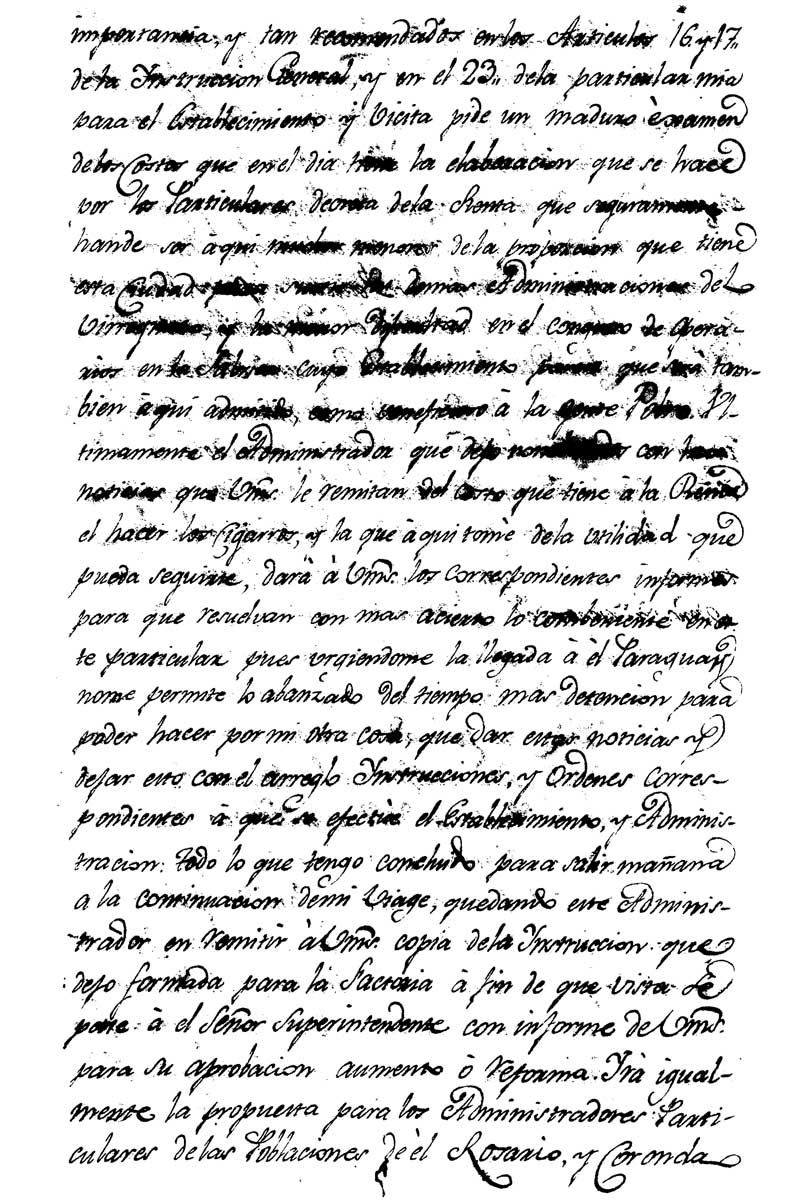 importancia, y tan recomendados en los Articulos 16. y 17.,
de la Instruccion General, y en el 23., dela particular mia
para el Establecimiento y Vicita pide un maduro èxamen
delos Costos que en el dia tiene la elaboracion que se hace
por los Particulares decreta dela Renta que seguramente
hande ser àqui mucho menores dela proporcion que tiene
esta Ciudad para surtir las demas Administraciones del
Virreynato, y la menor dificultad en el conquro de Opera-
rios en la Fabrica cuyo Establecimiento parece que será tam-
bien àqui admitido, como venefico à la gente Pobre. Ul-
timamente el Administrador que dejo con
noticias que Vms. le remitan del costo que tiene à la Renta
el hacer los Cigarros, y la que àqui tomè dela utilidad que
pueda seguirse, darà à Vms. los correspondientes informes
para que resuelvan con mas acierto lo combeniente en es
te particular pues urgiendome la llegada à èl Paraguay
nome permite lo abanzado del tiempo mas detencion para
poder hacer por mi otra cosa, que dar estas noticias y
dejar esto con el arreglo Instrucciones, y Ordenes Corres-
pondientes à que se efectùe el Establecimiento, y Adminis-
tracion. Todo lo que tengo concluido para salir mañana
a la continuacion demi Viage, quedando este Adminis-
trador en remitir à Vms. copia dela Instruccion que
dejo formada para là Factoria à fin de que vista se
pase à el Señor Superintendente con informe de Vms.
para su aprobacion aumento ò reforma. Irà igual-
mente la propuesta para los Administradores Parti-
culares de las Poblaciones de èl Rosario, y Coronda